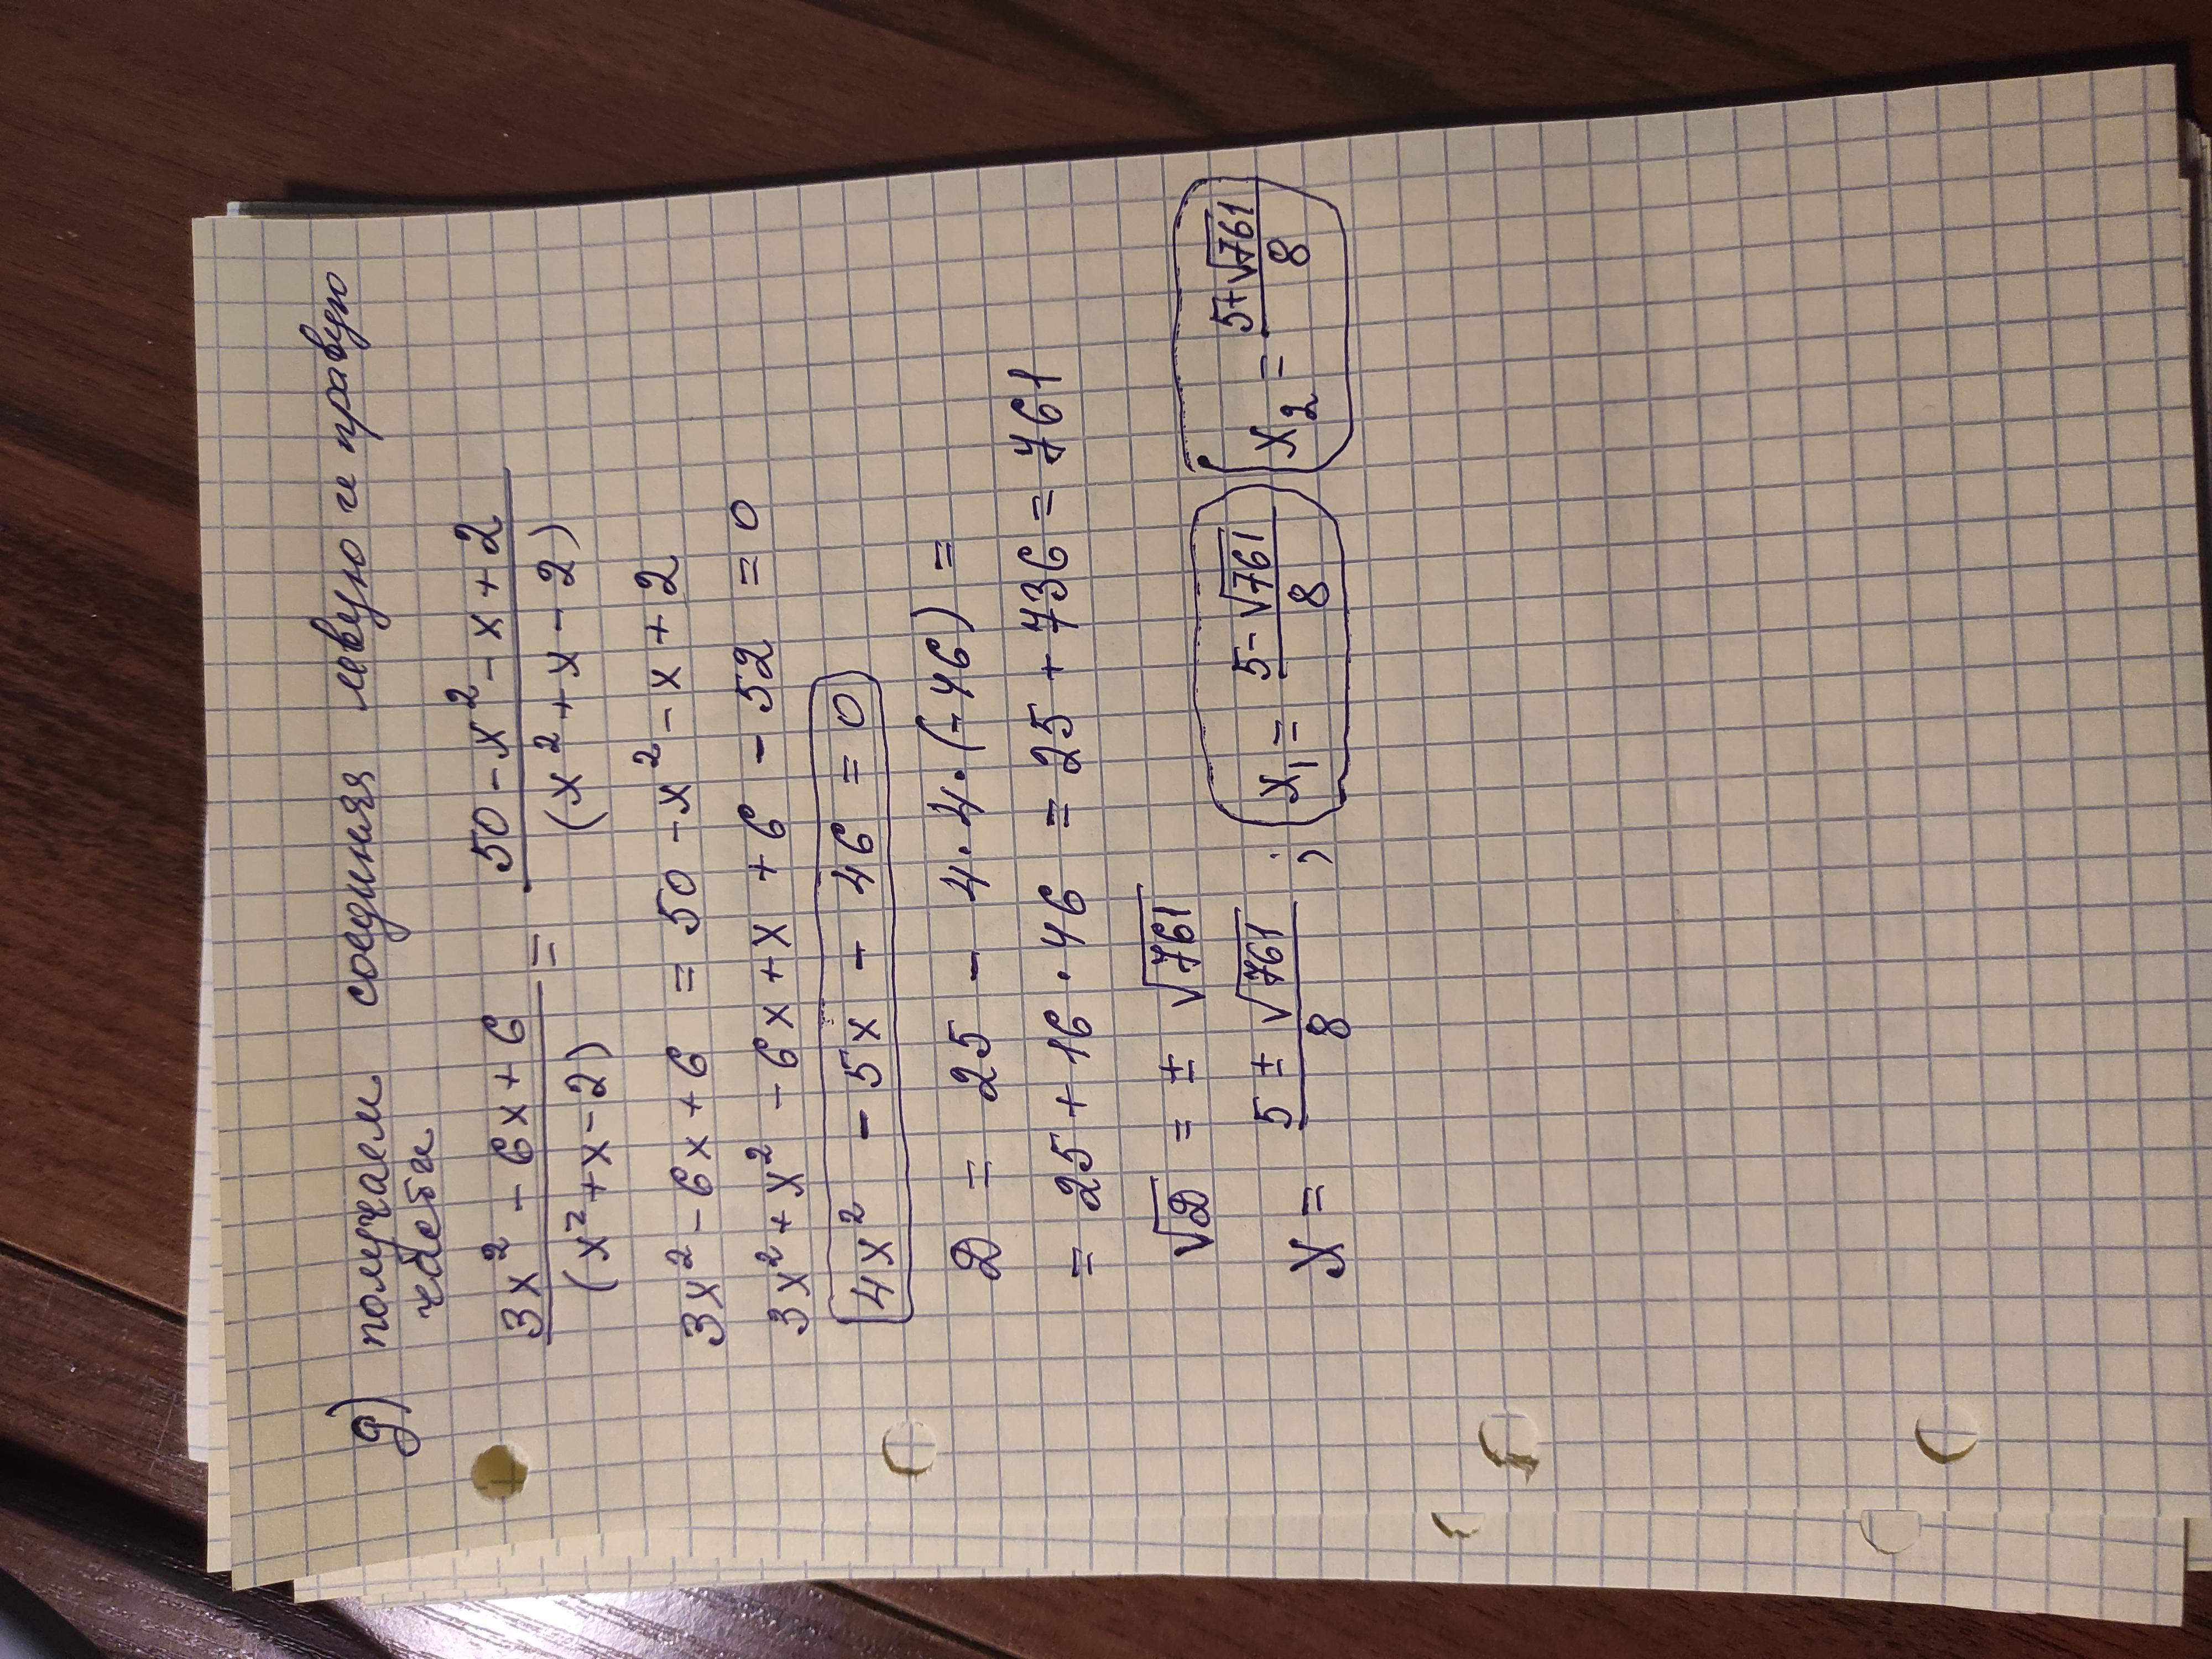 д) получаем соединяя левую и правую
части
3x² - 6x + 6 / (x² + x - 2) = 50 - x² - x + 2 / (x² + x - 2)
3x² - 6x + 6 = 50 - x² - x + 2
3x² + x² - 6x + x + 6 - 52 = 0
4x² - 5x - 46 = 0
D = 25 - 4·4·(-46) =
= 25 + 16·46 = 25 + 736 = 761
√D = ± √761
x = 5 ± √761 / 8 ; x₁ = 5 - √761 / 8 x₂ = 5 + √761 / 8